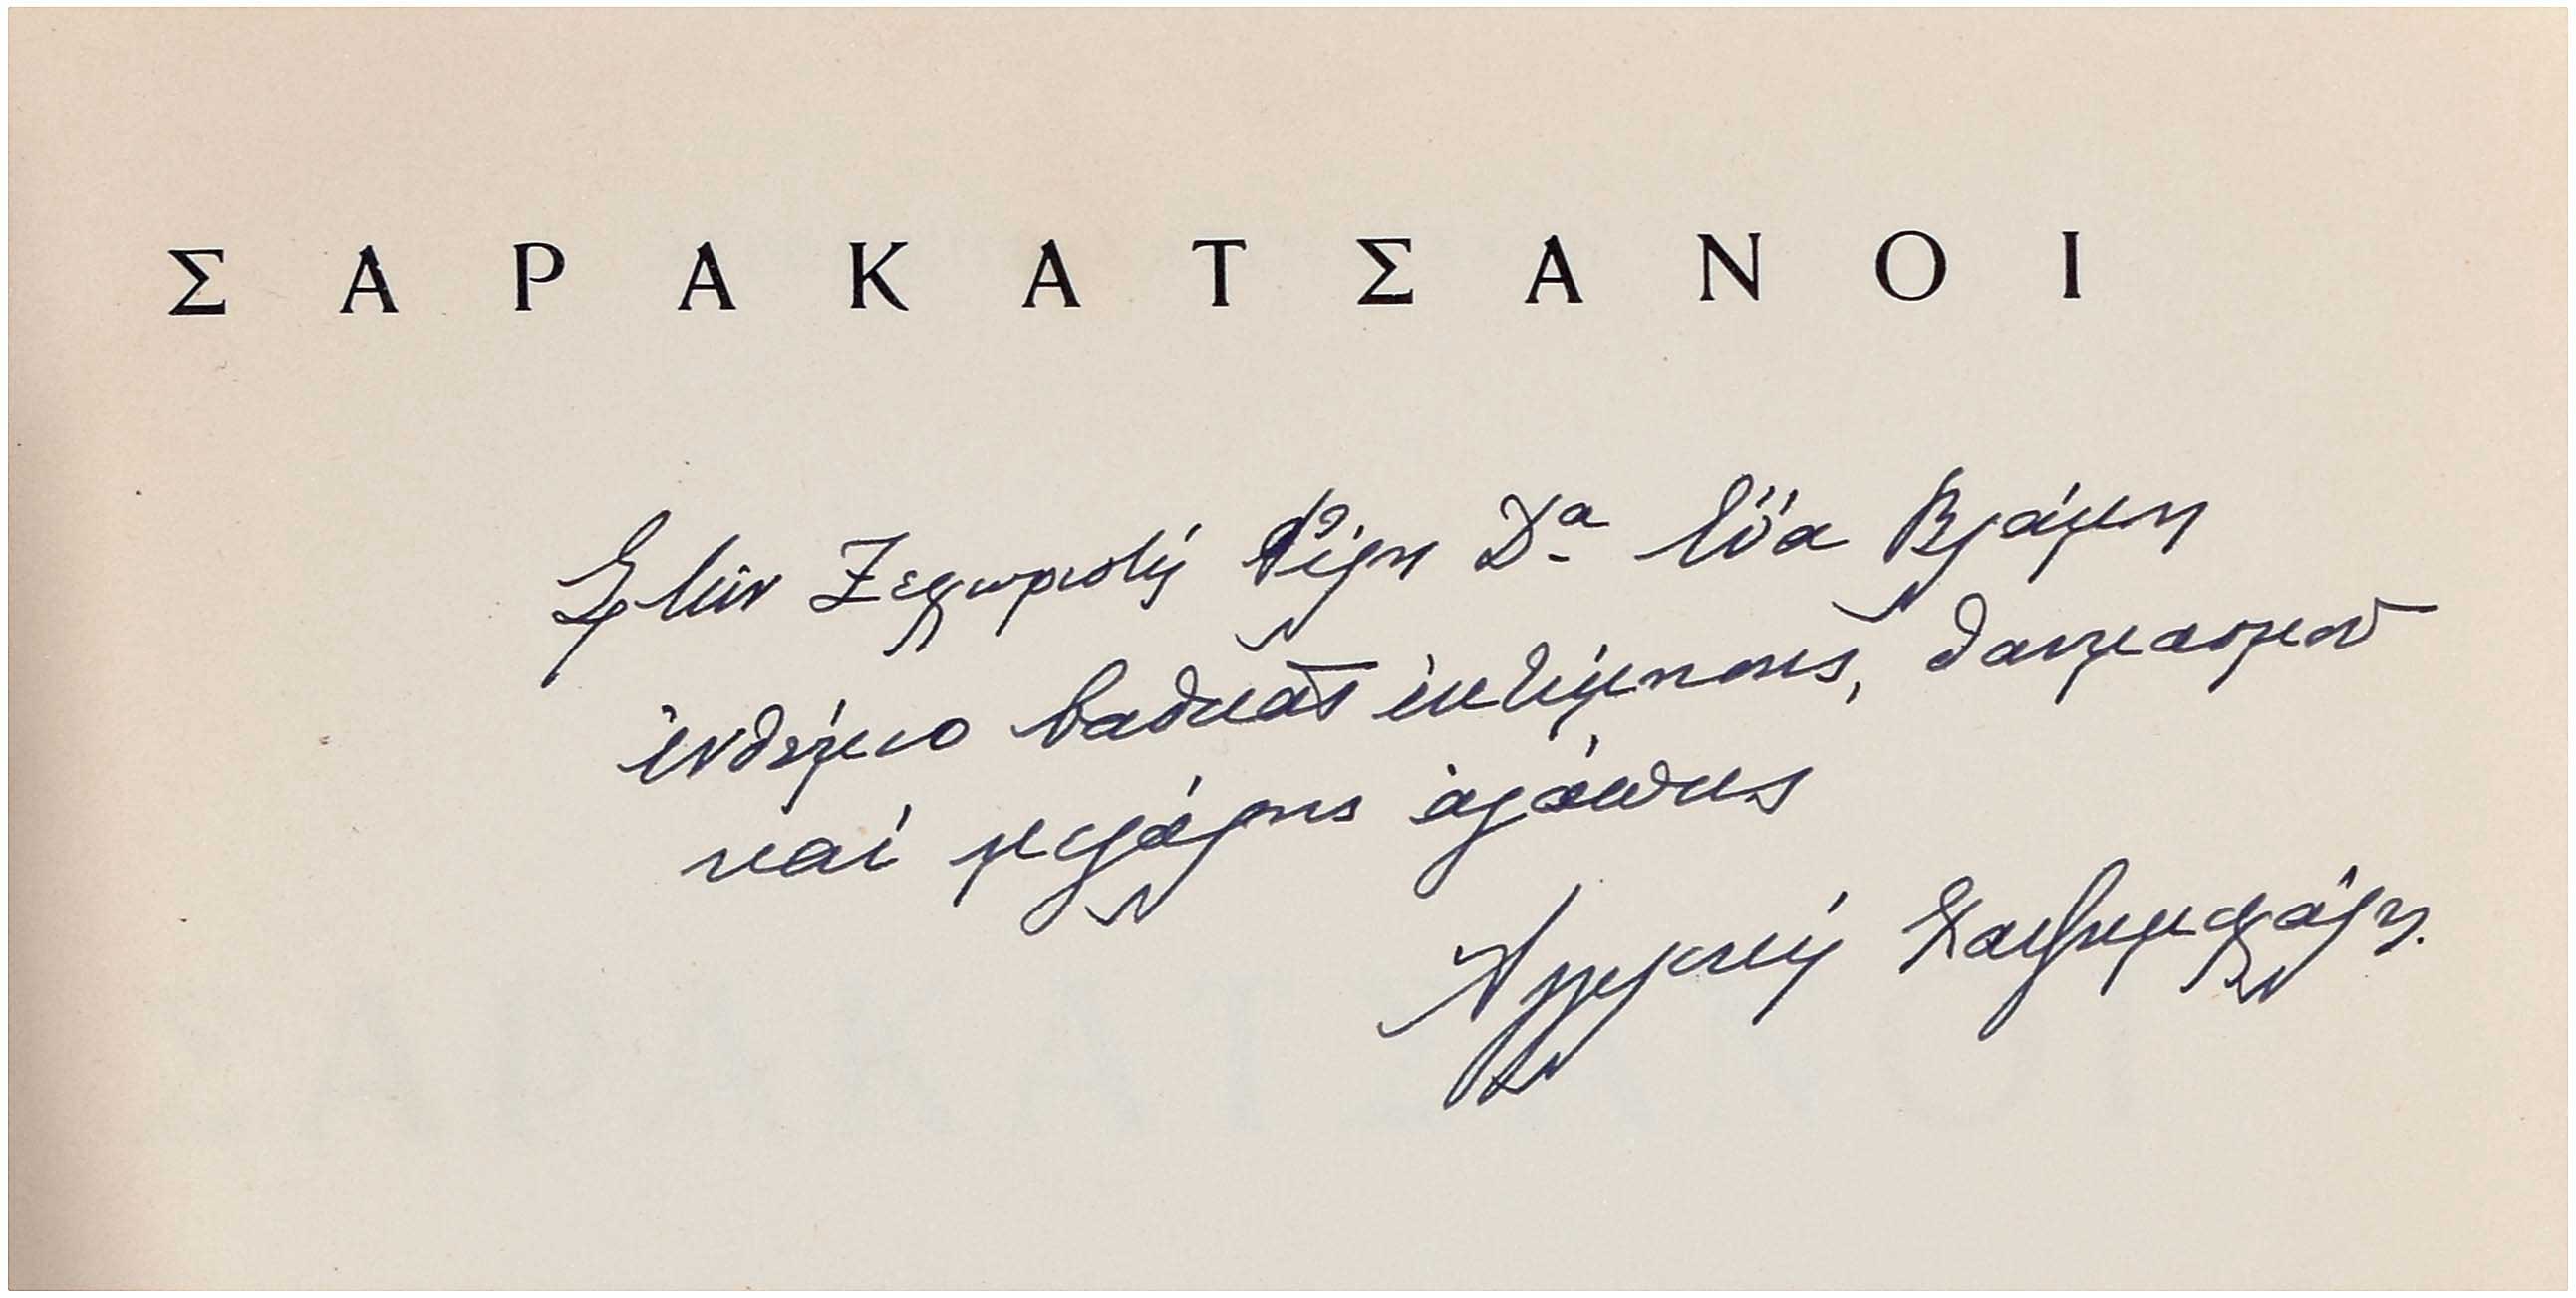 ΣΑΡΑΚΑΤΣΑΝΟΙ
Στὴν Ξεχωριστή Φίλη Δα Εὔα Βλάμη
ἐνθύμιο βαθειᾶς ἐκτίμησης, θαυμασμοῦ
καί μεγάλης ἀγάπης
Ἀγγελική Χατζημιχάλη.